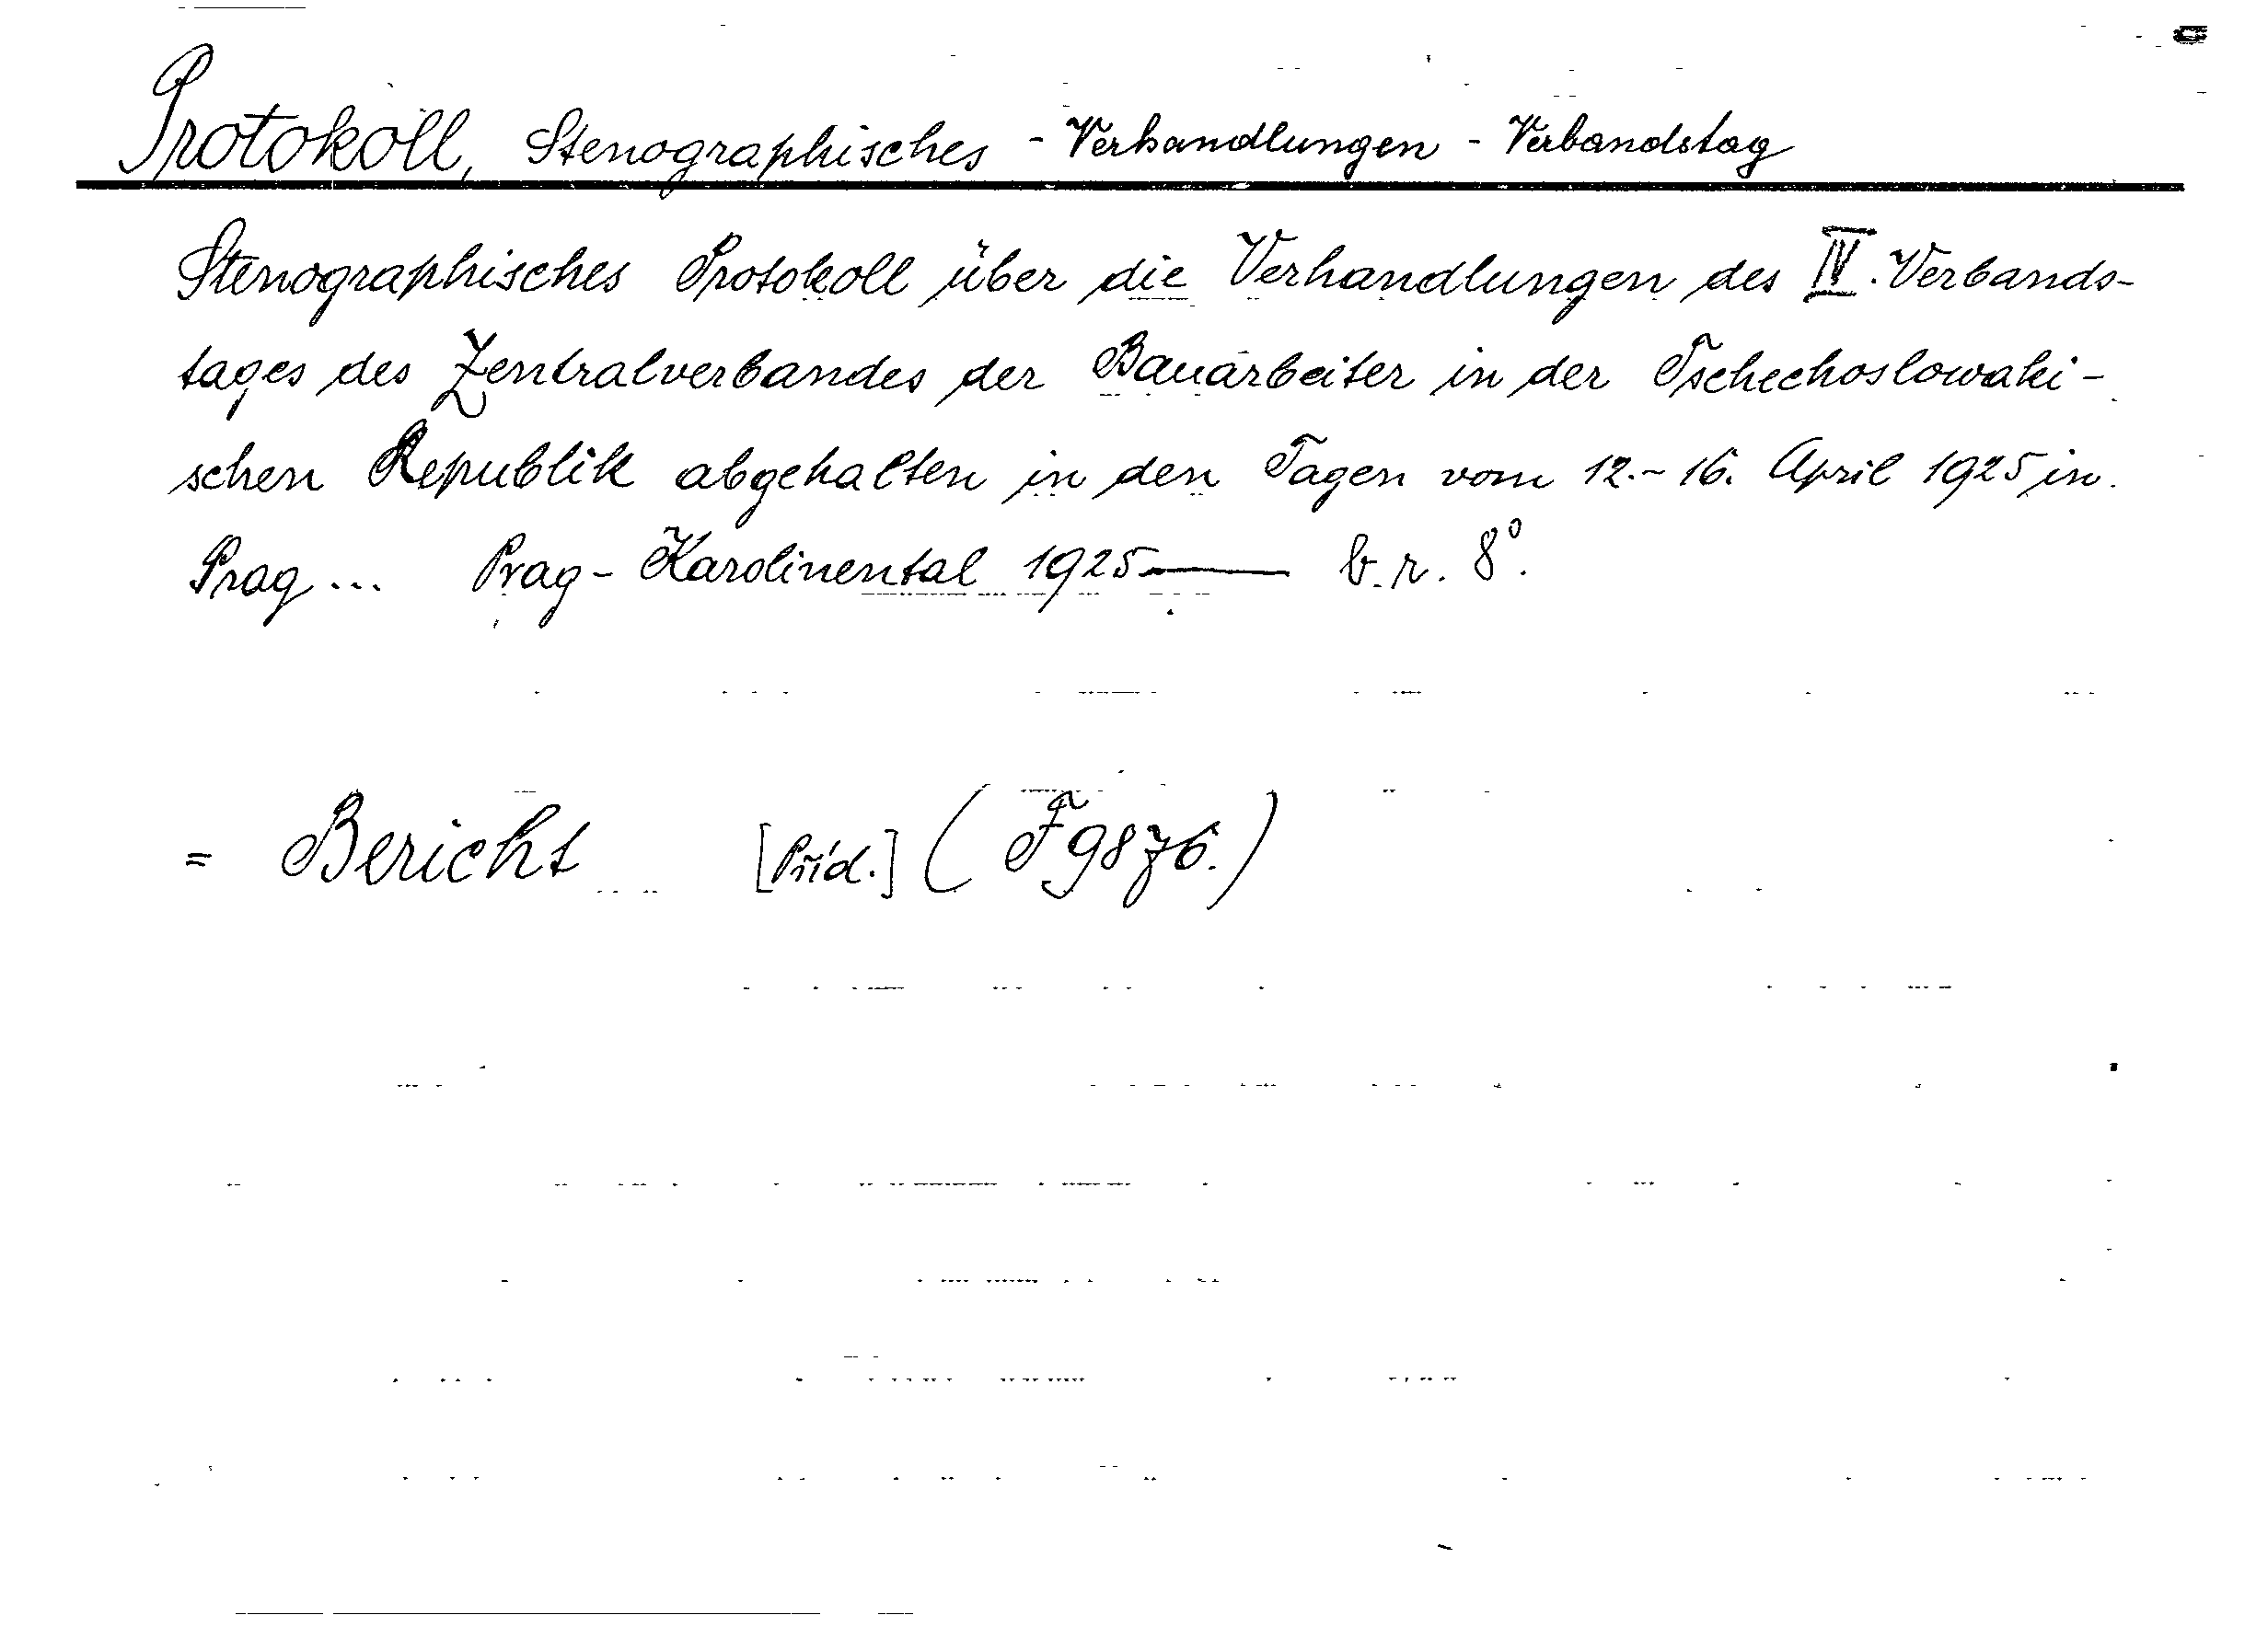 Protokoll, Stenographisches - Verhandlungen - Verbandstag
Stenographisches Protokoll über die Verhandlungen des IV. Verbands-
tages des Zentralverbandes der Bauarbeiter in der Tschechoslowaki-
schen Republik abgehalten in den Tagen vom 12.-16. April 1925 in
Prag... Prag-Karolinental 1925 — b.r. 8°.
= Bericht [Příd.] (F 9876.)